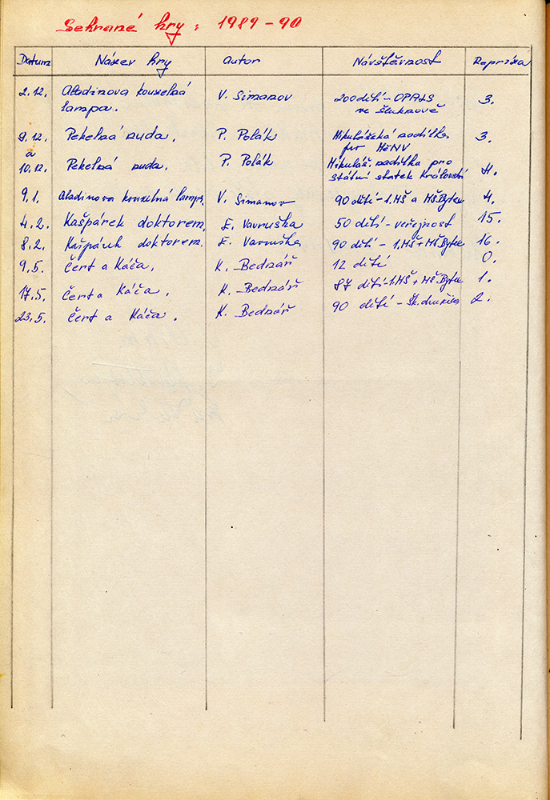 Sehrané hry : 1989-90
Datum Název hry autor Návštěvnost Repríza
2.12. Aladinova kouzelná V. Simanov 200 dětí - OPALS 3.
lampa. ve Šluknově
9.12. Pekelná nuda, P. Polák Mikulášská nadílka 3.
a pro MěNV
10.12. Pekelná nuda, P. Polák Mikuláš. nadílka pro 4.
státní statek Království
9.1. Aladinova kouzelná lampa V. Simanov 90 dětí - 1.MŠ a MŠ Bytex 4.
4.2. Kašpárek doktorem, E. Vavruška 50 dětí - veřejnost 15.
8.2. Kašpárek doktorem. E. Vavruška 90 dětí - 1.MŠ + MŠ Bytex 16.
9.5. Čert a Káča, K. Bednář 12 dětí 0.
17.5. Čert a Káča, K. Bednář 87 dětí - 1.MŠ + MŠ Bytex 1.
23.5. Čert a Káča. K. Bednář 90 dětí - Šk. družina 2.